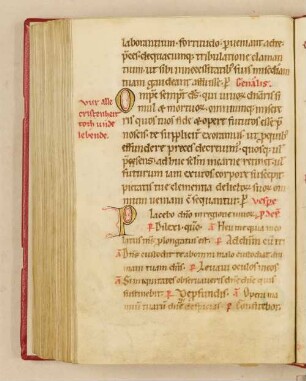 laborantium. fortitudo. pueniant ad te p
ces. de quacumque tribulatione claman
tium. ut sibi in necessitatib; suis miscdiam
tuam gaudeant affuisse. p. Genalis.
Omps sempit. ds. qui uiuor. dnaris si
mul & mortuor. omniumq; misere
ris quos tuos fide & opere futuros esse p
noscis. te supplicit exoramus. ut p quib;
effundere preces decreuim. quos q; ul
psens. adhuc sclm in carne retinet. ul
futurum iam exutos corpore suscepit.
pietatis tue clementia delictor. suor. om
nium ueniam csequantur. p. vespe
Vur alle
cristenheit
toth unde
lebende.
Placebo dno in regione uiuor. p
Dilexi. quo. a Heu me quia inco
latus ms plongatus est. p Ad dnm cu tr
a Dns custodit te ab omni malo custodiat ani
mam tuam dns. p Leuaui oculos meos
a Si iniquitates obseruaueris dne dne quis
sustinebit. p De pfundis. a Opera ma
nuu tuaru dne despicias. p Confitebor.